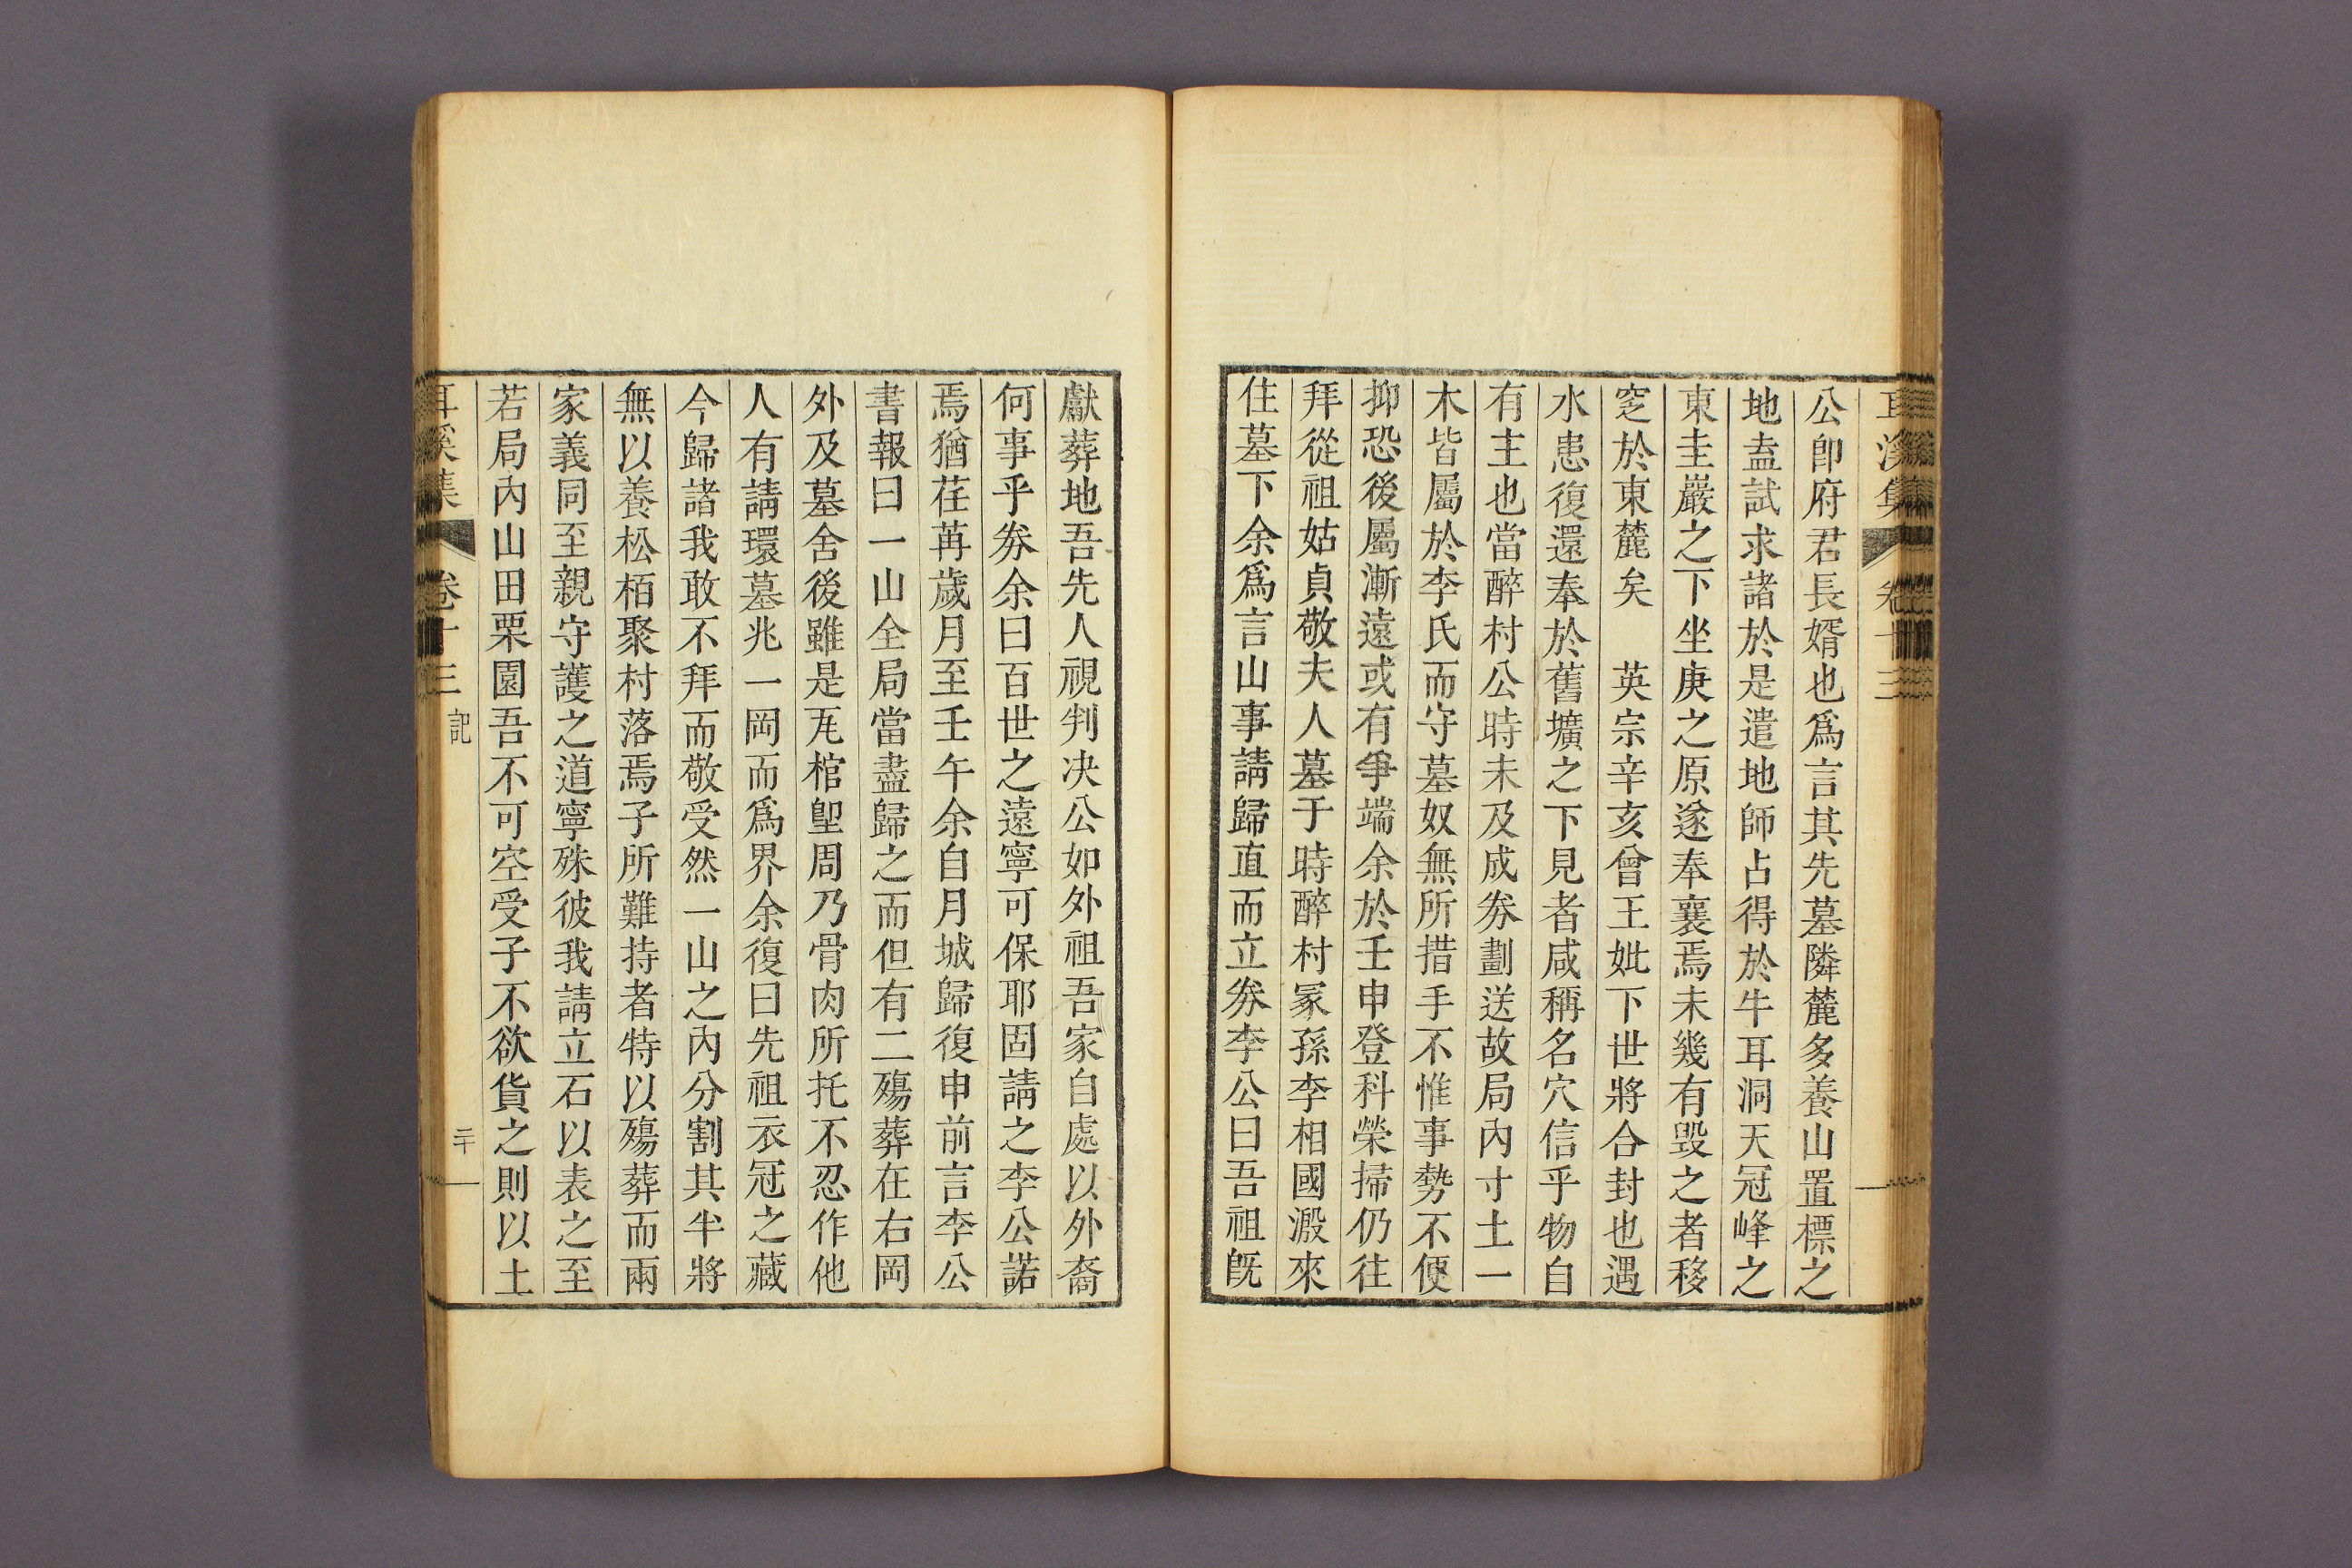 耳溪集 卷十三
公卽府君長婿也爲言其先墓隣麓多養山置標之
地盍試求諸於是遣地師占得於牛耳洞天冠峰之
東圭巖之下坐庚之原遂奉襄焉未幾有毁之者移
窆於東麓矣　英宗辛亥曾王妣下世將合封也遇
水患復還奉於舊壙之下見者咸稱名穴信乎物自
有主也當醉村公時未及成券劃送故局內寸土一
木皆屬於李氏而守墓奴無所措手不惟事勢不便
抑恐後屬漸遠或有爭端余於壬申登科榮掃仍往
拜從祖姑貞敬夫人墓于時醉村冢孫李相國溵來
住墓下余爲言山事請歸直而立券李公曰吾祖旣
獻葬地吾先人視判决公如外祖吾家自處以外裔
何事乎券余曰百世之遠寧可保耶固請之李公諾
焉猶荏苒歲月至壬午余自月城歸復申前言李公
書報曰一山全局當盡歸之而但有二殤葬在右岡
外及墓舍後雖是瓦棺堲周乃骨肉所托不忍作他
人有請環墓兆一岡而爲界余復曰先祖衣冠之藏
今歸諸我敢不拜而敬受然一山之內分割其半將
無以養松栢聚村落焉子所難持者特以殤葬而兩
家義同至親守護之道寧殊彼我請立石以表之至
若局內山田栗園吾不可空受子不欲貨之則以土
耳溪集 卷十三 記 二十